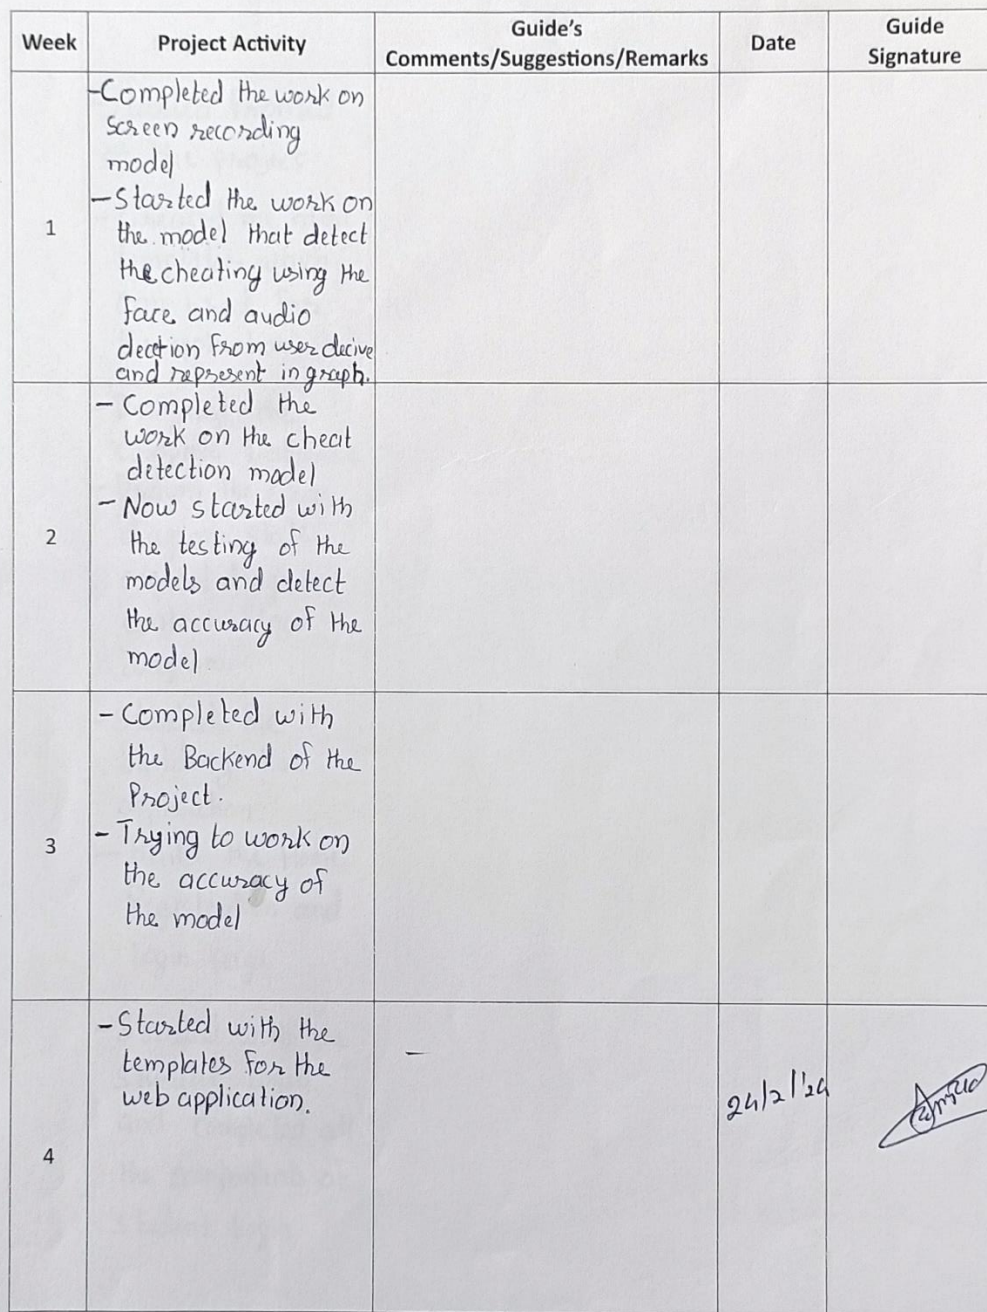 Week
Project Activity
Guide's
Comments/Suggestions/Remarks
Date
Guide
Signature
1
-Completed the work on
Screen recording
model
-Started the work on
the model that detect
the cheating using the
face and audio
dection from user decive
and represent in graph.
2
- Completed the
work on the cheat
detection model
- Now started with
the testing of the
models and detect
the accuracy of the
model
3
- Completed with
the Backend of the
Project.
- Trying to work on
the accuracy of
the model
4
-Started with the
templates for the
web application.
-
24/2/'24